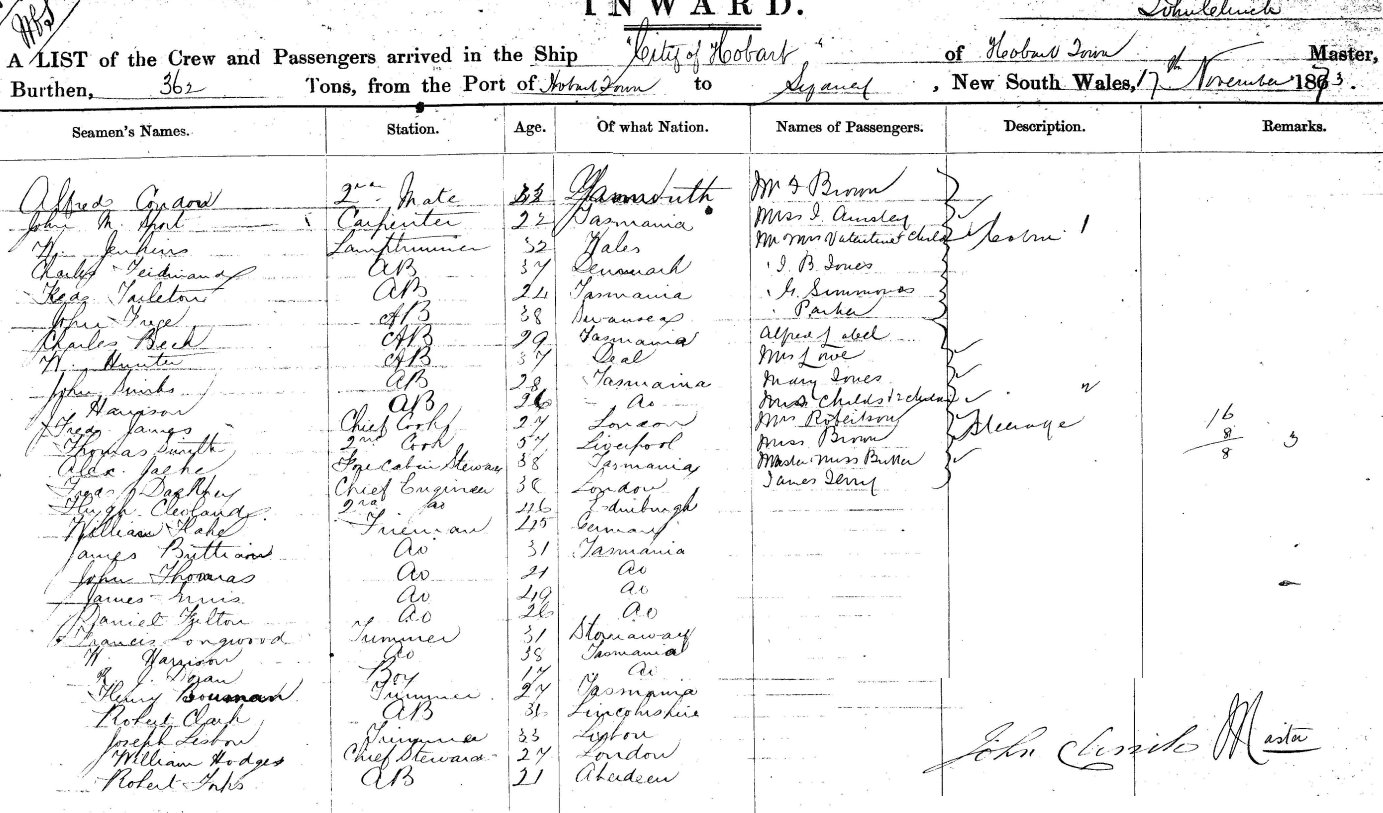 INWARD.
A LIST of the Crew and Passengers arrived in the Ship "City of Hobart" of Hobart Town Master,
Burthen, 362 Tons, from the Port of Hobart Town to Sydney, New South Wales, 17th November 1873.
Seamen's Names. Station. Age. Of what Nation. Names of Passengers. Description. Remarks.
Alfred Condon 2nd Mate 33 Yarmouth Mr I Brown
John M. Carpenter 22 Tasmania Miss I. Ainsley
W. Jenkins Lamptrimmer 32 Wales Mr Mrs Valentine & Child Cabin
Charles Ferdinand AB 37 Denmark " J. B. Jones
Fredk Tarleton AB 24 Tasmania " G. Simmonds
John AB 38 Swansea " Parker
Charles Beck AB 29 Tasmania Alfred Label
W. Hunter AB 37 Deal Mrs Lowe
John Binks AB 28 Tasmania Mary Jones "
Harrison AB 26 do Mrs Childs & 2 children
Fredk James Chief Cook 27 London Mrs Robertson Steerage 16
Thomas Smith 2nd Cook 57 Liverpool Miss Brown 8 3
Alex. Forecabin Steward 38 Tasmania Master Miss Butler 8
Fredk Chief Engineer 38 London James Terry
Hugh Cleland 2nd do 46 Edinburgh
William Hake Fireman 45 Germany
James Do 31 Tasmania
John Thomas Do 21 Do
James Ennis Do 49 Do
Daniel Felton Do 26 Do
Francis Longwood Trimmer 31 Stowaway
W. Harrison Do 38 Tasmania
J. Boy 17 Do
Henry Bousman Trimmer 27 Tasmania
Robert Clark AB 31 Lincolnshire
Joseph Lisbon Trimmer 33 Lisbon
William Hodges Chief Steward 27 London
Robert Inks AB 21 Aberdeen
John Clinch Master